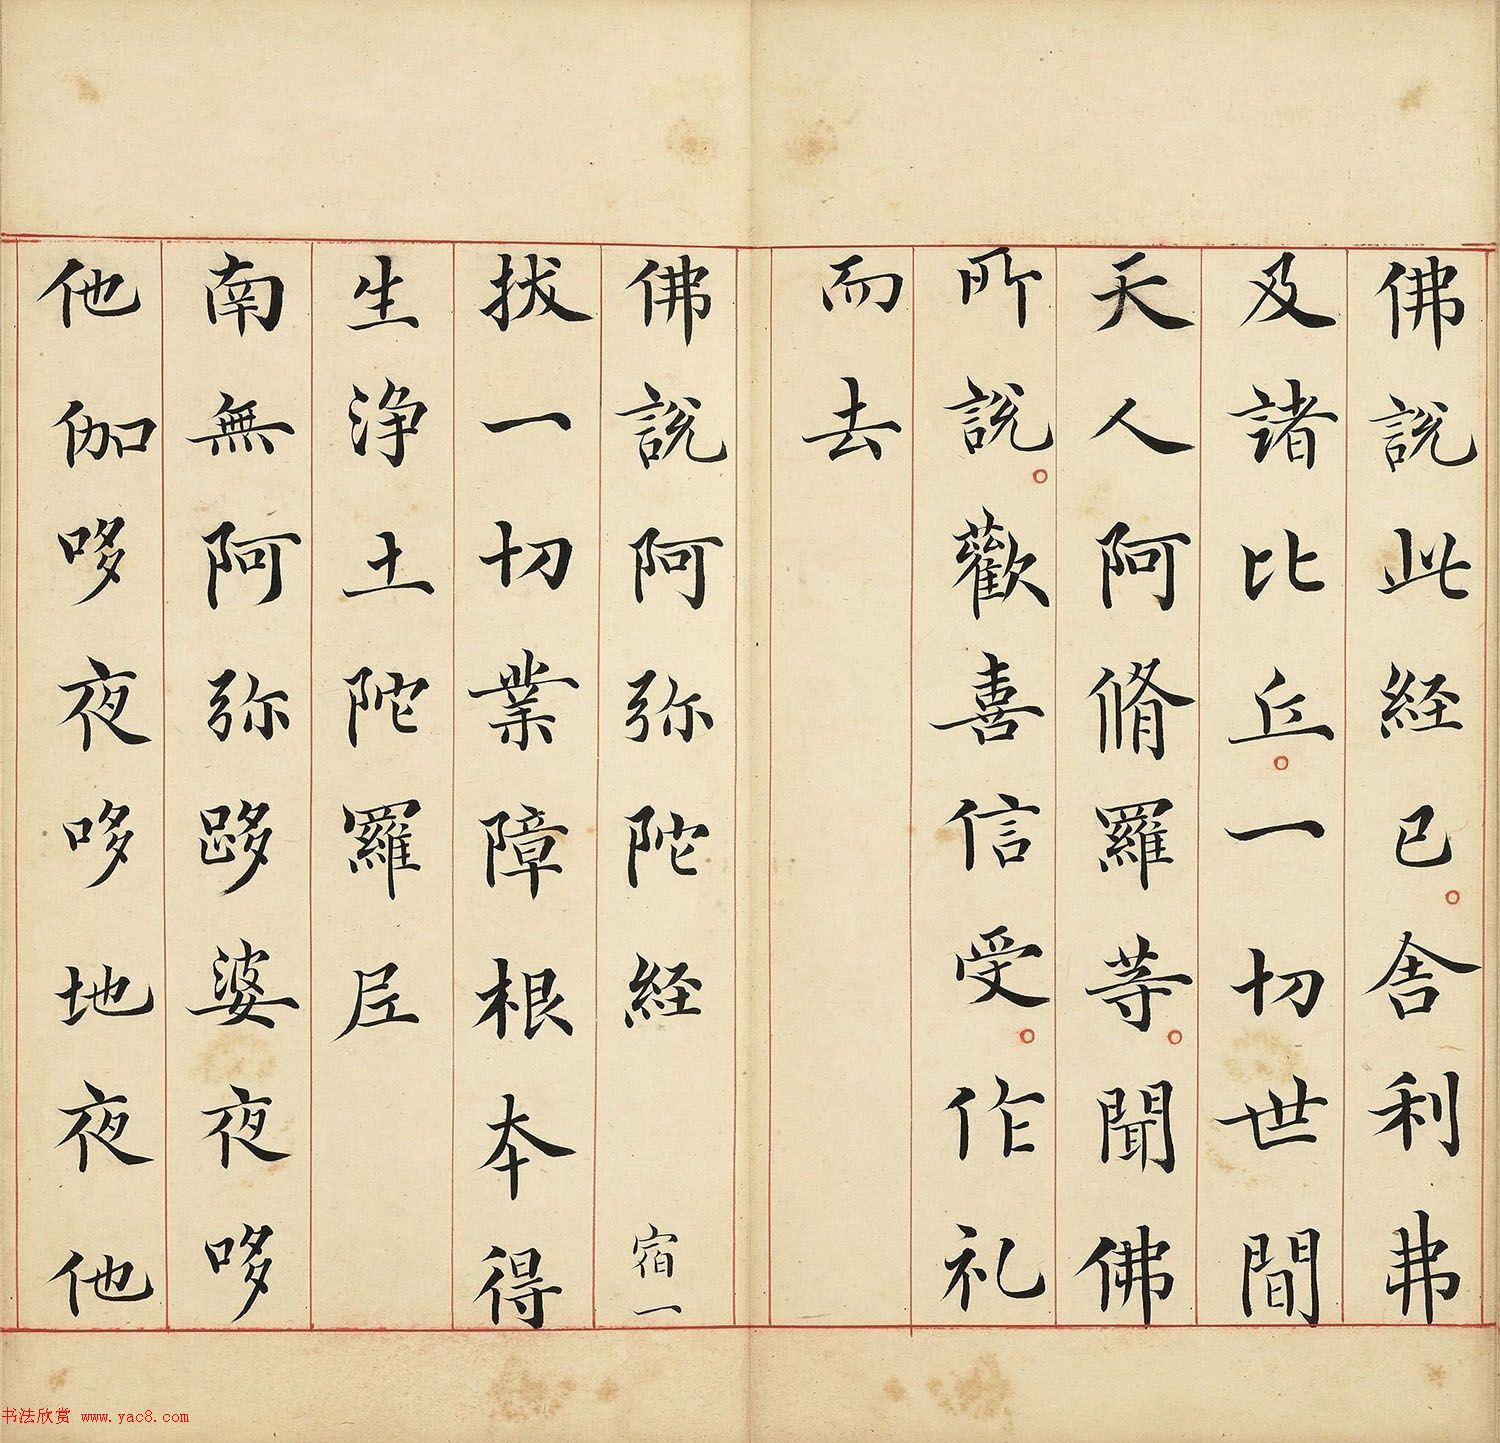 佛說此経已舍利弗
及諸比丘一切世間
天人阿脩羅等聞佛
所說歡喜信受作礼
而去
佛說阿弥陀経 宿一
拔一切業障根本得
生淨土陀羅尼
南無阿弥哆婆夜哆
他伽哆夜哆地夜他
书法欣赏 www.yac8.com